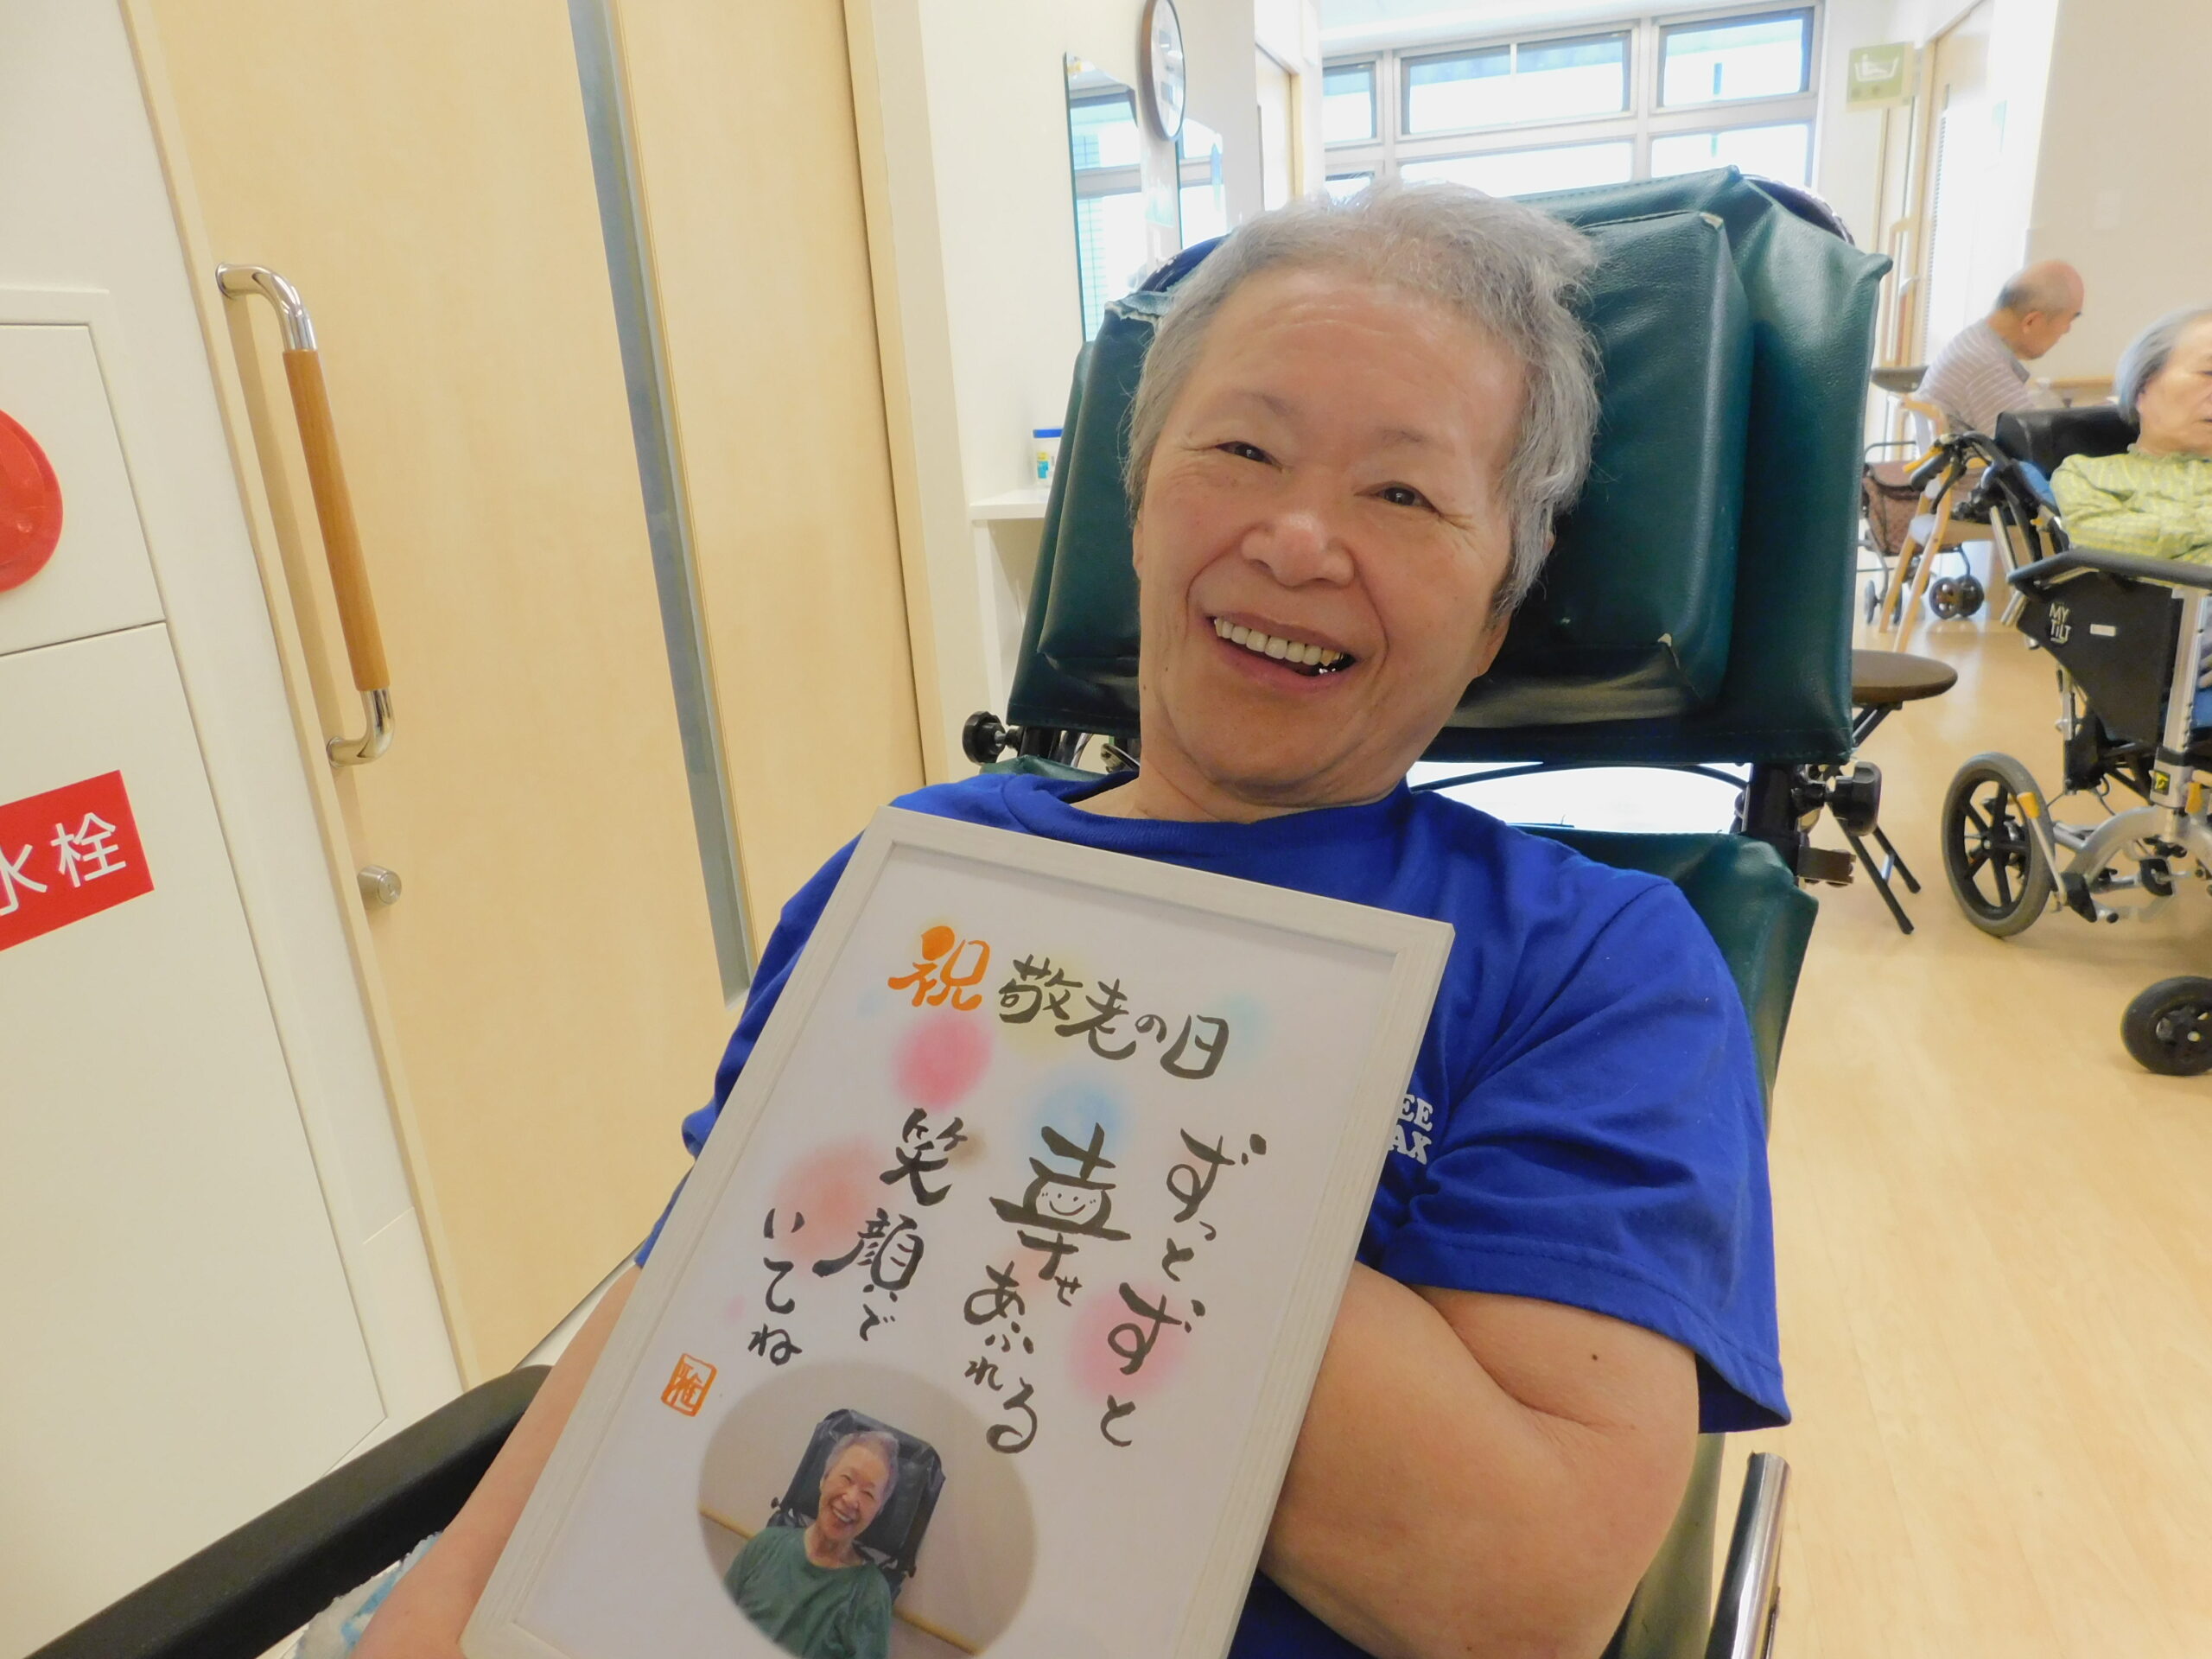 祝敬老の日
ずっとずっと
幸せあふれる
笑顔で
いてね
水栓
MY TILT